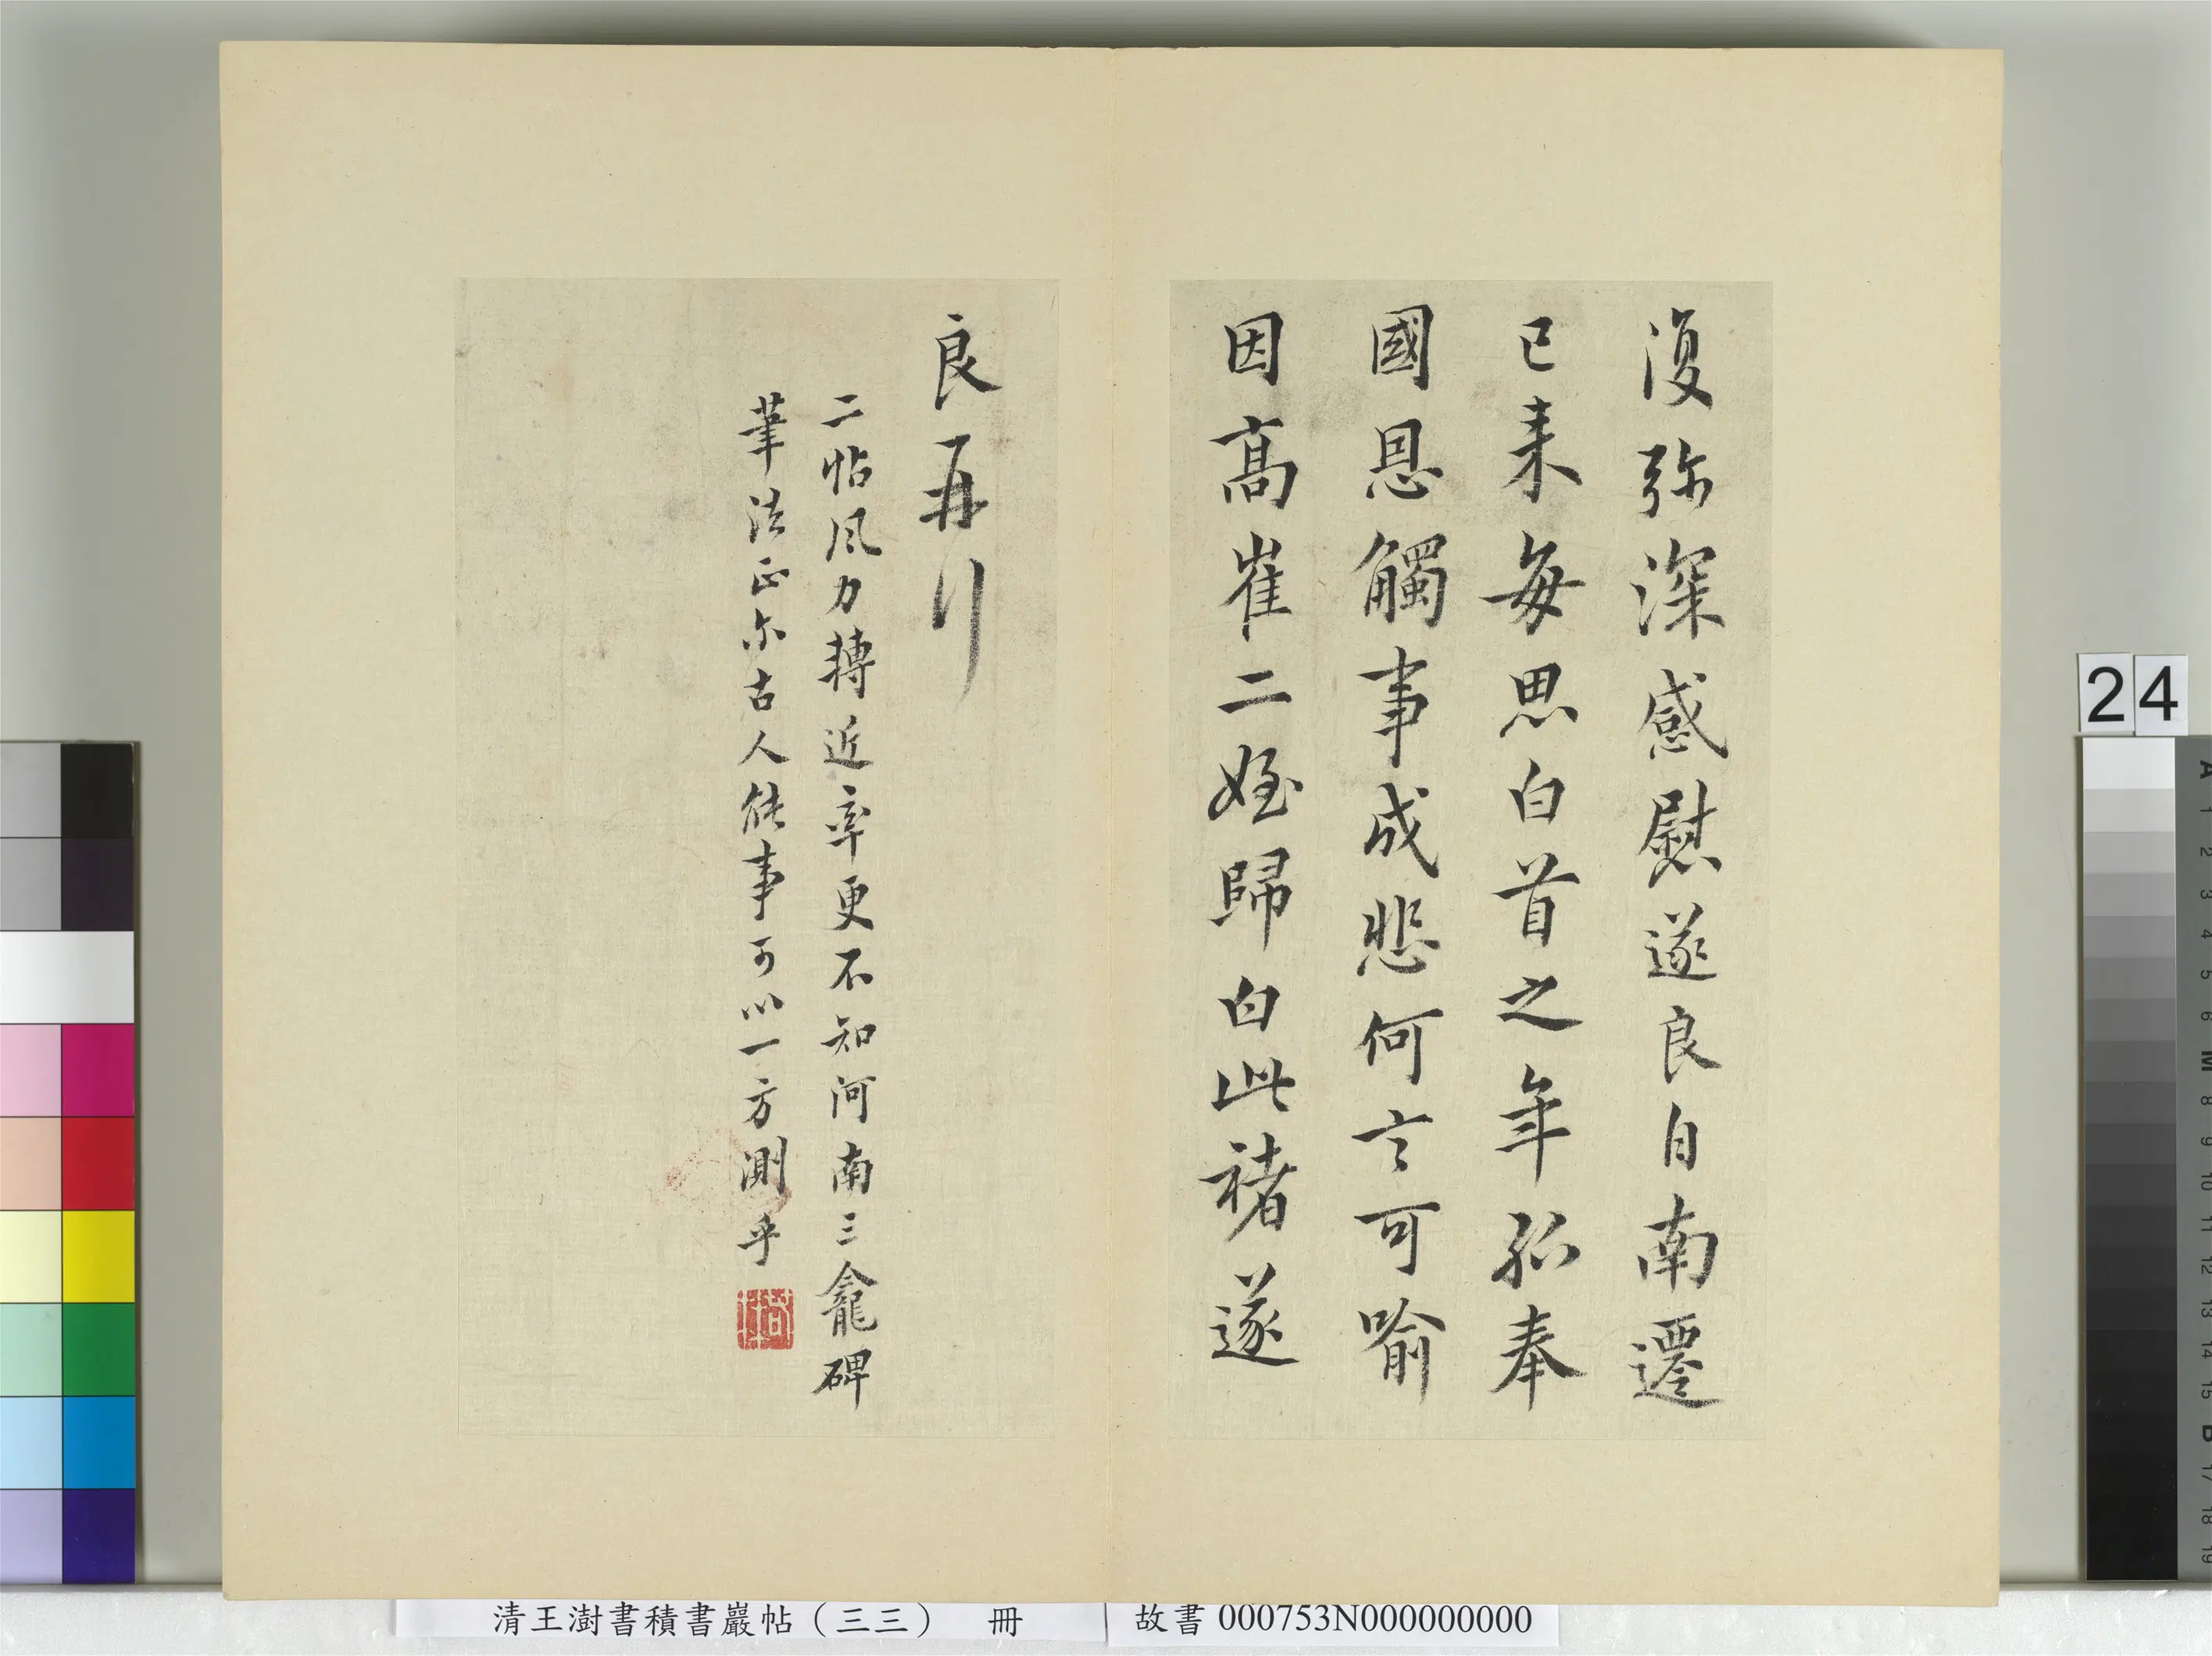 復弥深感慰遂良自南遷
已来每思白首之年孤奉
國恩觸事成悲何言可喻
因高崔二姪歸白此褚遂
良再行
二帖風力轉近率更不知河南三龕碑
筆法正尔古人能事可以一方測乎
24
清王澍書積書巖帖（三三） 冊
故書 000753N000000000
A 1 2 3 4 5 6 M 8 9 10 11 12 13 14 15 B 17 18 19